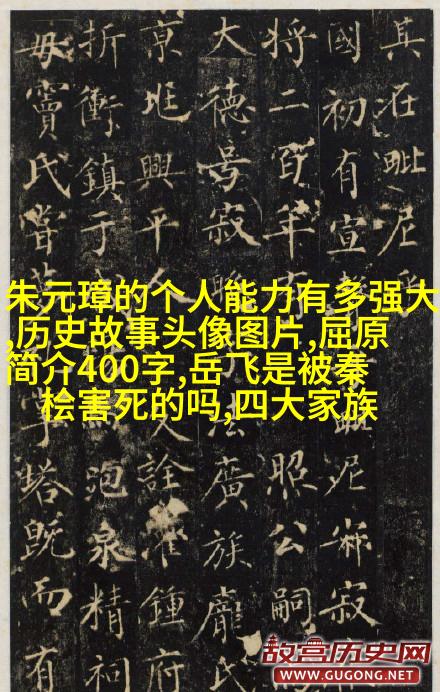 其在毗尼乎
國初有宣
尼 寂
將二百年而
照公嗣
大德号寂
法廣族龐氏
京兆興平人
父詮 鍾府
折衝鎮于
泉精祠
毋竇氏嘗
塔既而有
朱元璋的个人能力有多强大
,历史故事头像图片,屈原
简介400字,岳飞是被秦
桧害死的吗,四大家族
故宫历史网
WWW.GUGONG.NET